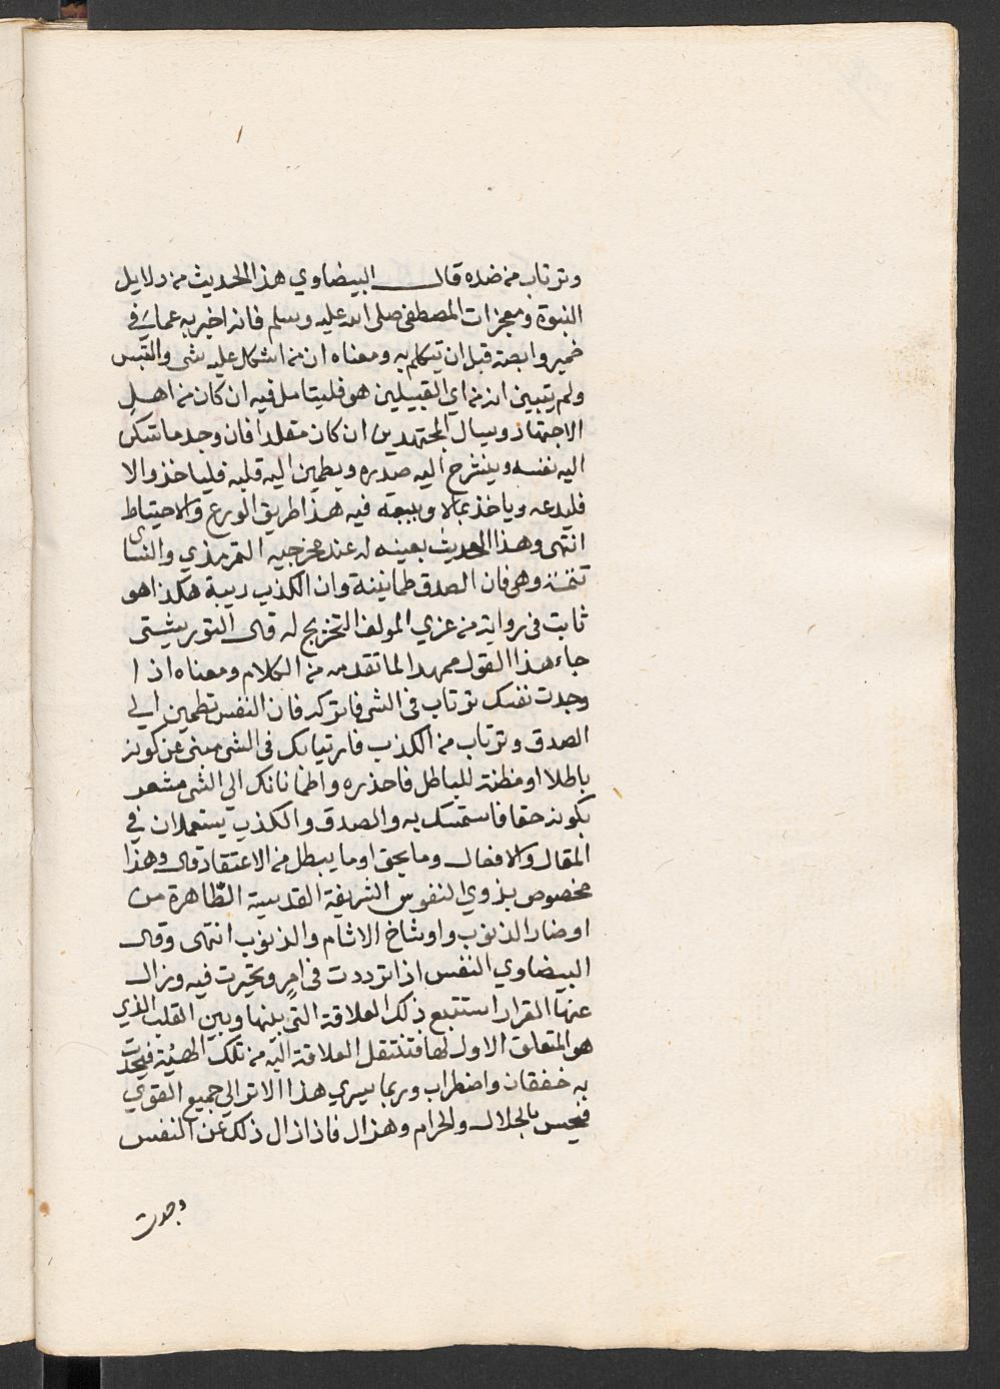 وترتاب من ضده قال البيضاوي هذا الحديث من دلايل
النبوة ومعجزات المصطفى صلى الله عليه وسلم فانه اخبر به عما في
ضمير وابصة قبل ان يتكلم به ومعناه ان من اشكل عليه شي والتبس
ولم يتبين انه من اي القبيلين هو فليتامل فيه ان كان من اهل
الاجتهاد ويسال المجتهدين ان كان مقلدا فان وجد ما تسكن
اليه نفسه وينشرح اليه صدره ويطمين اليه قلبه فلياخذ والا
فليدعه وياخذ بما لا ريبة فيه هذا طريق الورع والاحتياط
انتهى وهذا الحديث بعينه له عند مخرجيه الترمذي والنساي
تتمة وهي فان الصدق طمانينة وان الكذب ريبة هكذا هو
ثابت في رواية من عزي المولف التخريج له قال التوربشتي
جاء هذا القول ممهدا لما تقدمه من الكلام ومعناه اذا
وجدت نفسك ترتاب في الشي فاتركه فان النفس تطمين الي
الصدق وترتاب من الكذب فارتيابك في الشي مبني عن كونه
باطلا او مظنة للباطل فاحذره واطمانانك الى الشي مشعر
بكونه حقا فاستمسك به والصدق والكذب يستعملان في
المقال والافعال وما يحق او ما يبطل من الاعتقاد قال وهذا
مخصوص بذوي النفوس الشريفة القدسية الطاهرة من
اوضار الذنوب واوشاخ الاثام والذنوب انتهى وقال
البيضاوي النفس اذا ترددت في امر وتحيرت فيه وزال
عنها القرار استتبع ذلك العلاقة التي بينها وبين القلب الذي
هو المتعلق الاول لها فتنتقل العلاقة اليه من تلك الهيئة فيحدث
به خفقان واضطراب وربما يسري هذا الاثر الي جميع القوي
فتحس بالحلال والحرام وهذا ال فاذا زال ذلك عن النفس
وجدت